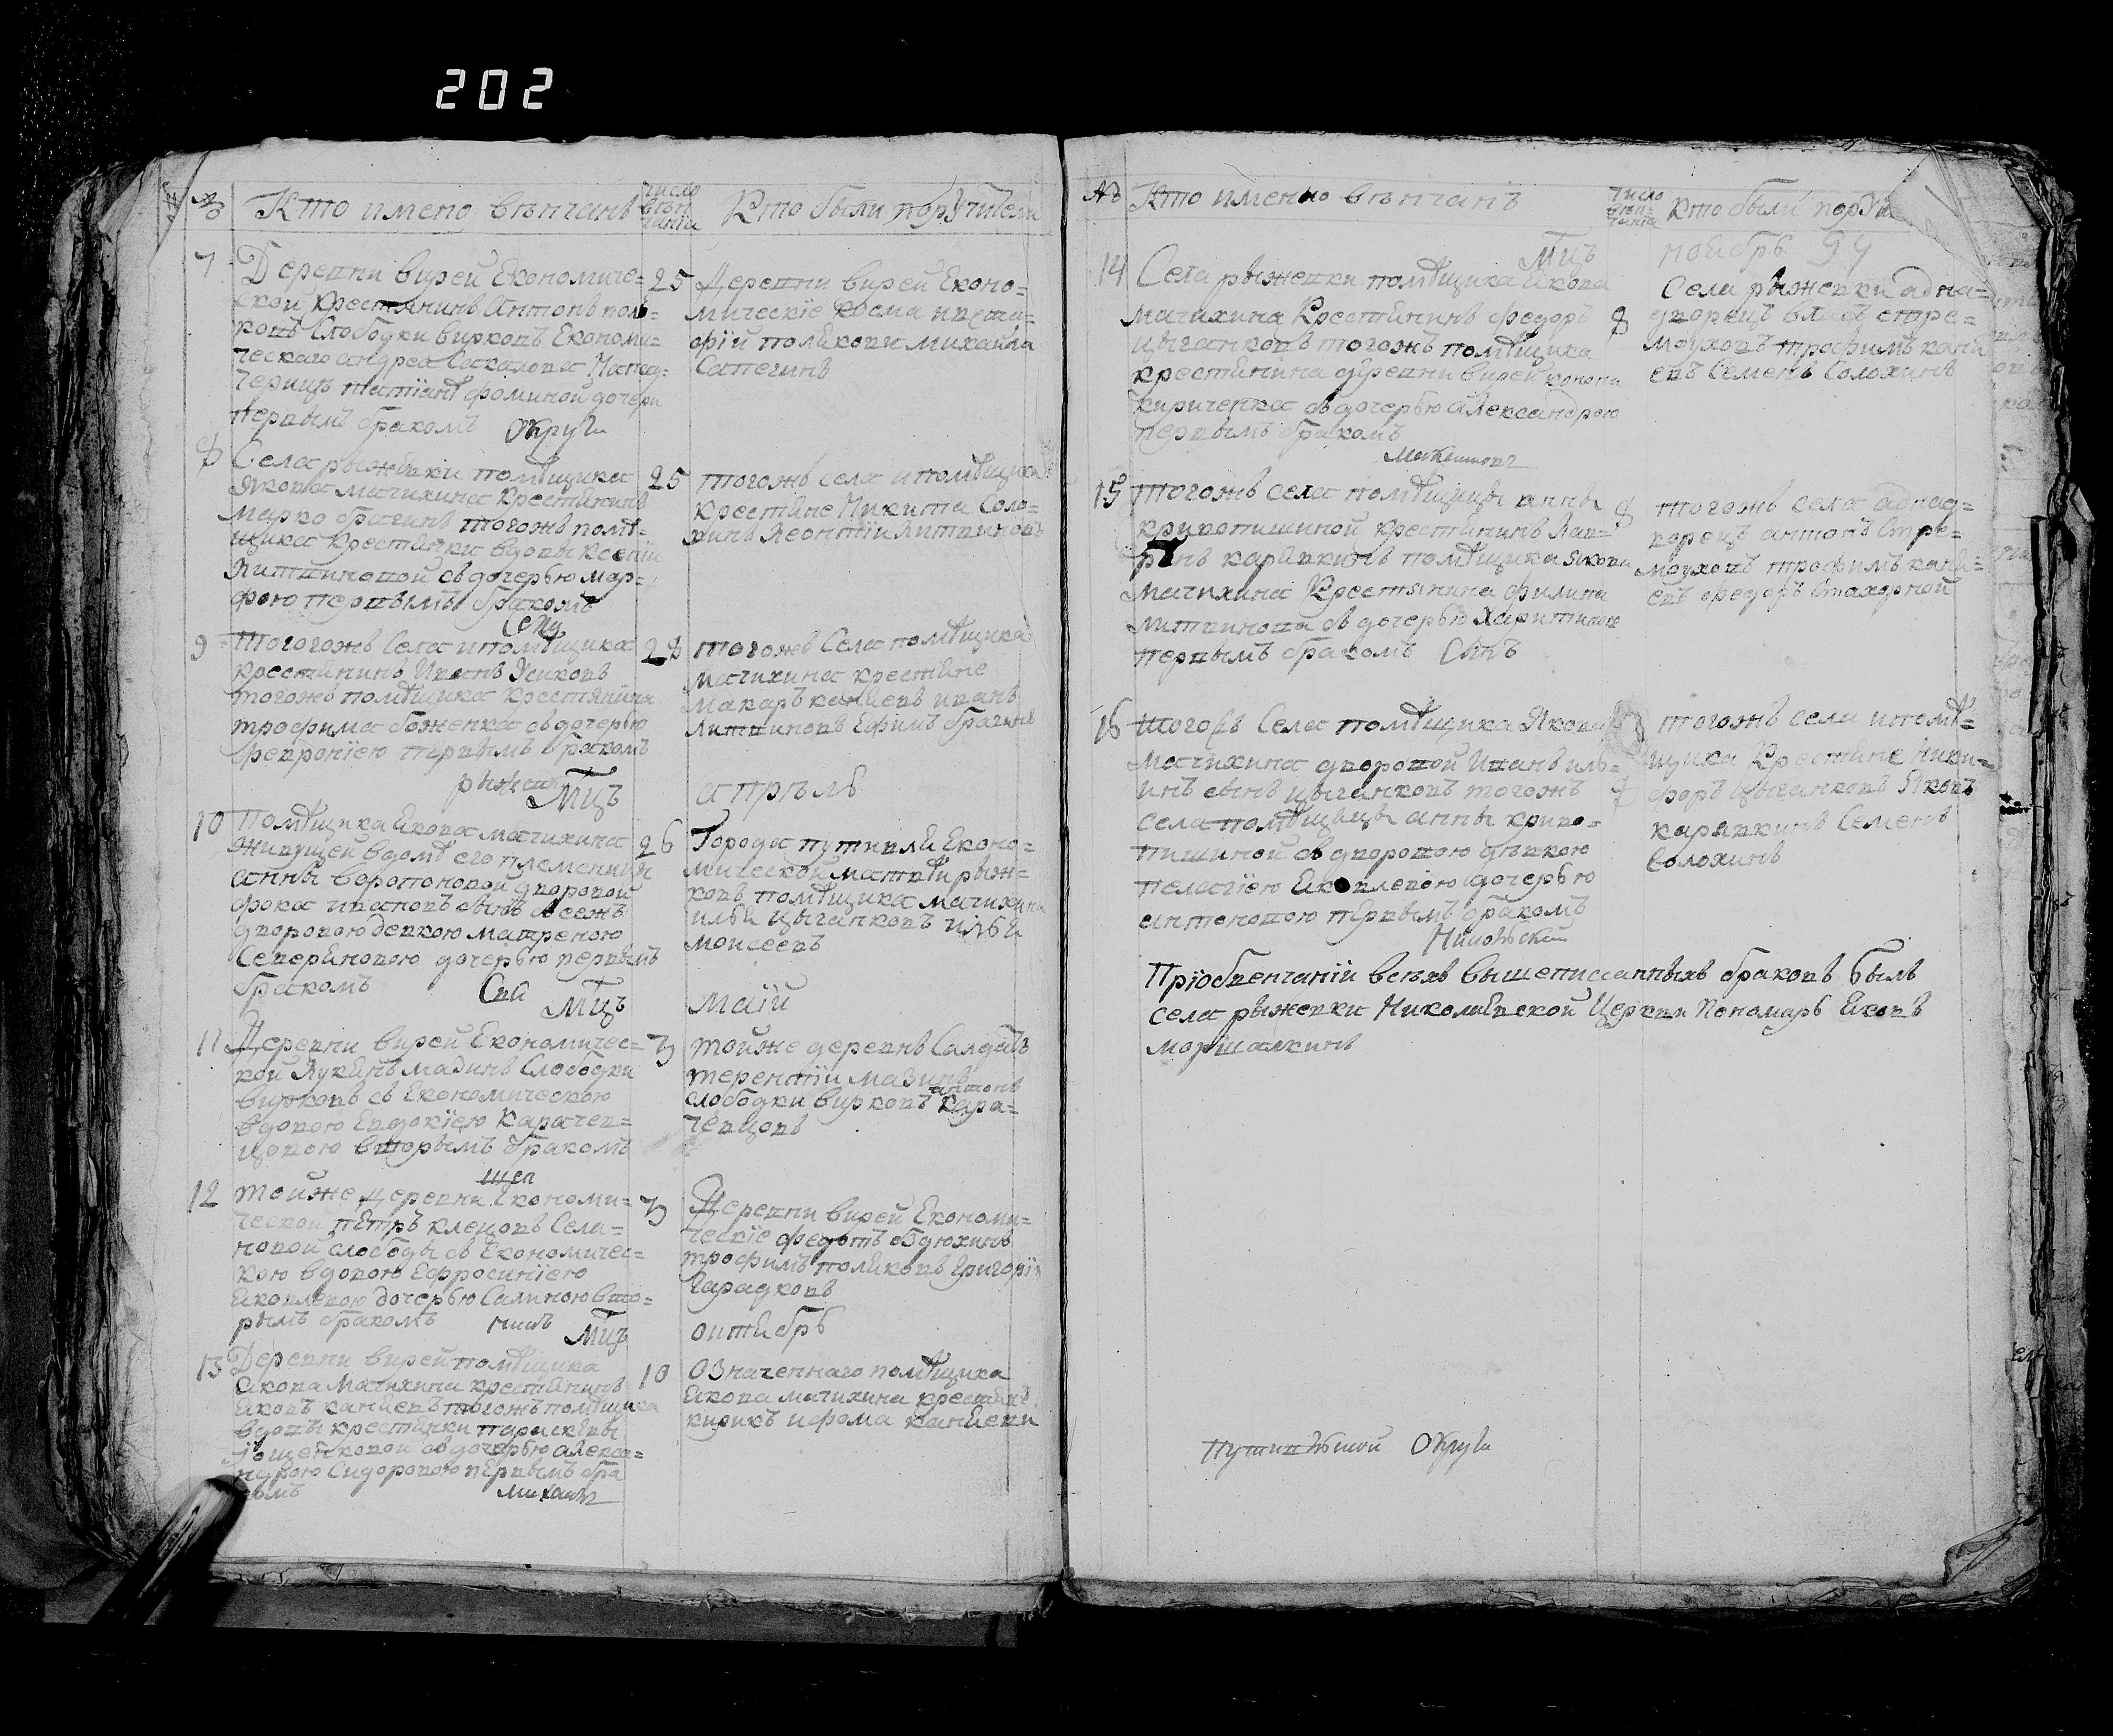 202
№
Кто имено вѣнчанъ
число
вѣн
чанїи
Кто были поручители
7
Деревни вирей Економиче=
ской крестянинъ Антонъ поля=
ковъ Слободки вирковъ Економи=
ческаго андрея Сакалова
черицъ татїанѣ фоминой дочери
первымъ бракомъ Округи
25
Деревни вирей Еконо=
мическїе косма
поляковы михаила
Сапегинъ
8
Села рыжевки помѣщика
Якова мачихина крестянинъ
марко брагинъ тогожъ помѣ=
щика крестянки вдовы ксенїи
Литвиновой съ дочерью мар=
фою первымъ бракомъ
25
тогожъ села и помѣщика
крестяне Никита Соло=
хинъ Леонтїи Литвиновъ
9
Тогогожъ Села и помѣщика
крестянинъ Иванъ Усиковъ
тогожъ помѣщика крестянина
трофима боженка съ дочерью
февронїею первымъ бракомъ
28
тогожъ Села помѣщика
мачихина крестяне
макаръ каняевъ иванъ
Литвиновъ Ефимъ брагинъ
Мцъ
апрѣль
10
Помѣщика Якова мачихина
живущей в домѣ его племеницы
анны воропоновой дворовой
фока ивановъ сынъ
дворовою девкою матреною
Северіановою дочерью первымъ
бракомъ
26
Города путивля Еконо=
мической матвѣй рыж=
ковъ помѣщика мачихина
илья цыганковъ илья
моисеевъ
Мцъ
маїй
11
Деревни вирей Економичес=
кой Лукянъ мазинъ Слободки
вирковъ съ Економическою
вдовою Евдокїею Карачев=
цовою вторымъ бракомъ
тойже деревнѣ Салдатъ
терентїи мазинъ
антонъ
слободки вирковъ кара=
чевцовъ
12
тойже деревни Економи=
ческой петръ клецовъ Сели=
новой слободы съ Економичес=
кою вдовою Ефросинїею
Яковлевою дочерью Салиною вто=
рымъ бракомъ
Деревни вирей Економи=
ческїе федотъ
трофимъ поляковъ григорїи
гарадковъ
Мцъ
октябрь
13
Деревни вирей помѣщика
Якова Мачихина крестянинъ
Яковъ каняевъ тогожъ помѣщика
вдовы крестянки параскевы
съ дочерью алекса=
ндрою Сидоровою первымъ бра
комъ
10
Означеннаго помѣщика
Якова мачихина крестяне
кирикъ и фома каняевы
№
Кто именно вѣнчанъ
число
вѣн=
чанїа
Кто были пору
Мцъ
ноябрь
14
Села рыжевки помѣщика Якова
мачихина Крестянинъ федоръ
цыганковъ тогожъ помѣщика
крестянина деревни вирей
кириченка съ дочерью александрою
первымъ бракомъ
8
Села рыжевки адна=
дворецъ власъ стре=
моуховъ трофимъ каня
евъ Семенъ Солохинъ
15
Тогожъ села помѣщицы анны
кривопишиной крестянинъ Лав=
рѣнъ карявкинъ помѣщика якова
мачихина Крестянина филипа
литвинова съ дочерью Харитиною
первымъ бракомъ
8
тогожъ села аднад=
ворецъ антонъ Стре=
моуховъ трофимъ каня=
евъ федоръ Стахорной
16
тогожъ Села помѣщика Якова
мачихина дворовой Иванъ иль=
инъ сынъ цыганковъ тогожъ
села помѣщицы анны криво=
пишиной съ дворовою дѣвкою
пелагїею Яковлевою дочерью
антоновою первымъ бракомъ
тогожъ села и помѣ=
щика Крестяне Ники=
форъ цыганковъ Яковъ
карявкинъ Семенъ
Солохинъ
Прїобвенчанїи всѣхъ вышеписанныхъ браковъ былъ
села рыжевки Николаевской Церкви Пономарь Яковъ
маршалкинъ
Округи